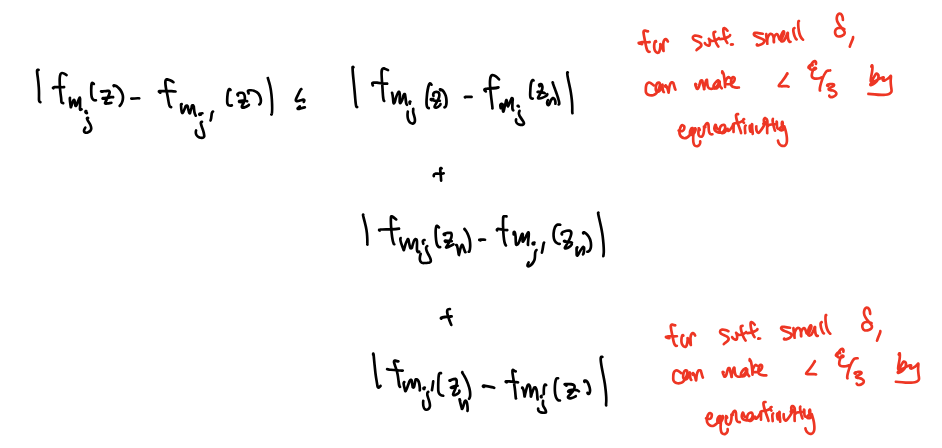 |f_{m_j}(z) - f_{m_{j'}}(z)| ≤ |f_{m_j}(z) - f_{m_j}(z_n)|
for suff. small δ,
can make < ε/3 by
equicontinuity
+
|f_{m_j}(z_n) - f_{m_{j'}}(z_n)|
+
|f_{m_{j'}}(z_n) - f_{m_{j'}}(z)|
for suff. small δ,
can make < ε/3 by
equicontinuity